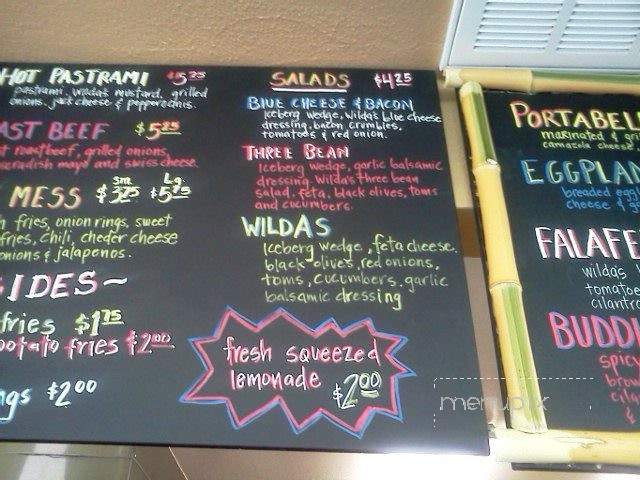 HOT PASTRAMI $5.25
pastrami, wilda's mustard, grilled
onions, jack cheese & pepperchinis.
AST BEEF $5.25
roastbeef, grilled onions,
mayo and swiss cheese
MESS sm $3.75 Lg $5.75
fries, onion rings, sweet
fries, chili, cheder cheese
onions & jalapenos.
SIDES~
fries $1.75
potato fries $2.00
ngs $2.00
SALADS $4.25
BLUE CHEESE & BACON
Iceberg wedge, Wilda's blue cheese
dressing, bacon crumbles,
tomatoes & red onion.
THREE BEAN
Iceberg wedge, garlic balsamic
dressing, Wilda's three bean
salad, feta, black olives, toms
and cucumbers.
WILDAS
Iceberg wedge, feta cheese,
black olives, red onions,
toms, cucumbers, garlic
balsamic dressing
fresh squeezed
lemonade $2.00
PORTABELL
marinated & gr
cheese
EGGPLAN
breaded egg
cheese & g
FALAFE
wilda's
tomatoe
cilantro
BUDD
spicy
brow
cila
&
menupix